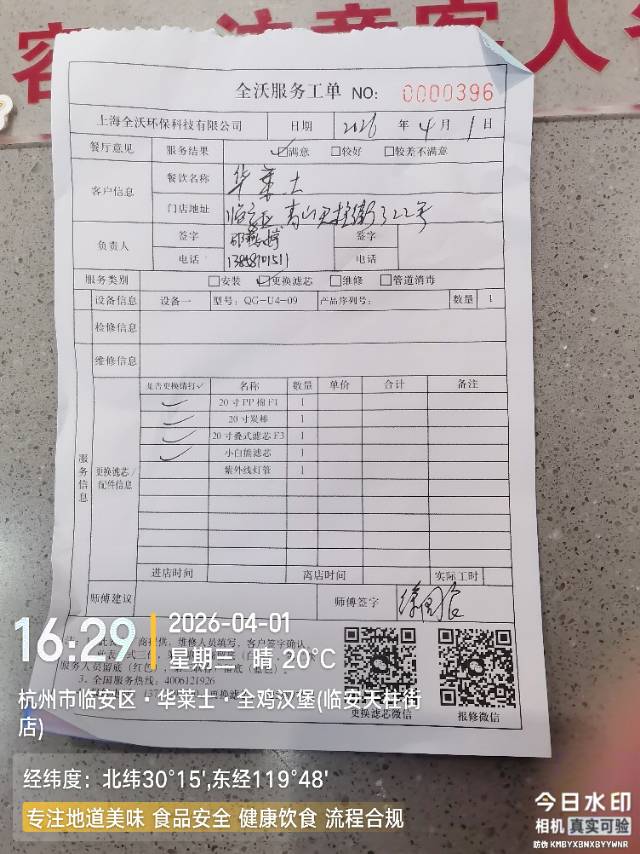 注意客人
全沃服务工单 NO: 0000396
上海全沃环保科技有限公司 日期 2026 年 4 月 1 日
餐厅意见 服务结果 ☑满意 □较好 □较差不满意
客户信息 餐饮名称 华莱士
门店地址 临安区 青山天柱街322号
负责人 签字 签字
电话 13858101511 电话
服务类别 □安装 ☑更换滤芯 □维修 □管道消毒
设备信息 设备一 型号: QG-U4-09 产品序列号: 数量 1
检修信息
维修信息
服务信息 更换滤芯/配件信息
是否更换请打✓ 名称 数量 单价 合计 备注
✓ 20寸PP棉F1 1
✓ 20寸炭棒 1
✓ 20寸叠式滤芯F3 1
✓ 小白熊滤芯 1
紫外线灯管 1
进店时间 离店时间 实际工时
师傅建议 师傅签字
维修人员填写, 客户签字确认
服务人员留底(红色),
3. 全国服务热线: 4006121926
更换滤芯微信 报修微信
16:29
2026-04-01
星期三 晴 20°C
杭州市临安区·华莱士·全鸡汉堡(临安天柱街
店)
经纬度: 北纬30°15',东经119°48'
专注地道美味 食品安全 健康饮食 流程合规
今日水印
相机 真实可验
防伪 KMBYXBNXBYYWNR